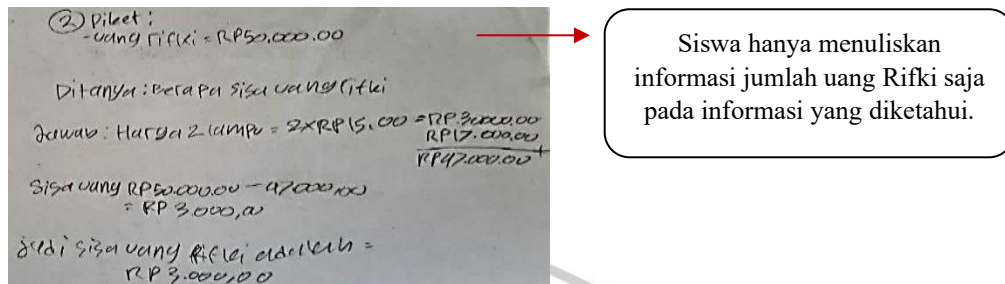 ② Diket:
- uang rifki = RP50.000.00
Ditanya: Berapa sisa uang rifki
Jawab: Harga 2 lampu = 2xRP15.00 = RP.30000.00
RP17.000.00 +
RP47.000.00
Sisa uang RP50.000.00 - 47000,00
= RP 3.000,00
jadi sisa uang Rifki adalah =
RP 3.000,00
Siswa hanya menuliskan
informasi jumlah uang Rifki saja
pada informasi yang diketahui.